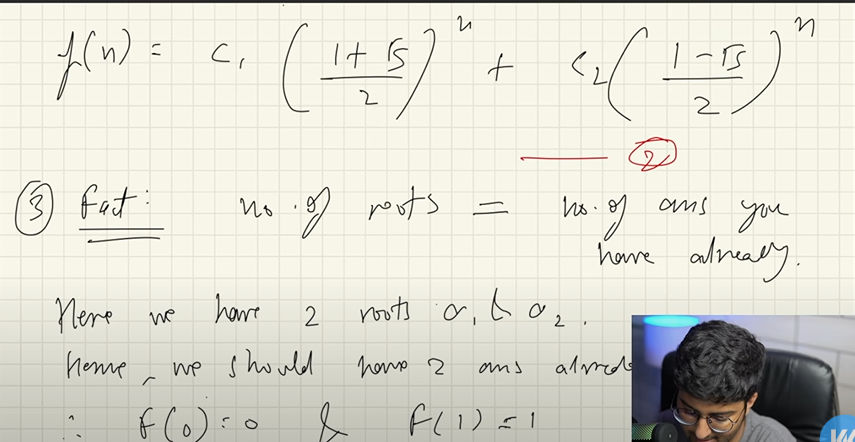 f(n) = c₁ ((1+√5)/2)ⁿ + c₂ ((1-√5)/2)ⁿ
2
③ Fact: no. of roots = no. of ans you
have already.
Here we have 2 roots α₁ & α₂.
Hence, we should have 2 ans
∴ f(0)=0 & f(1)=1